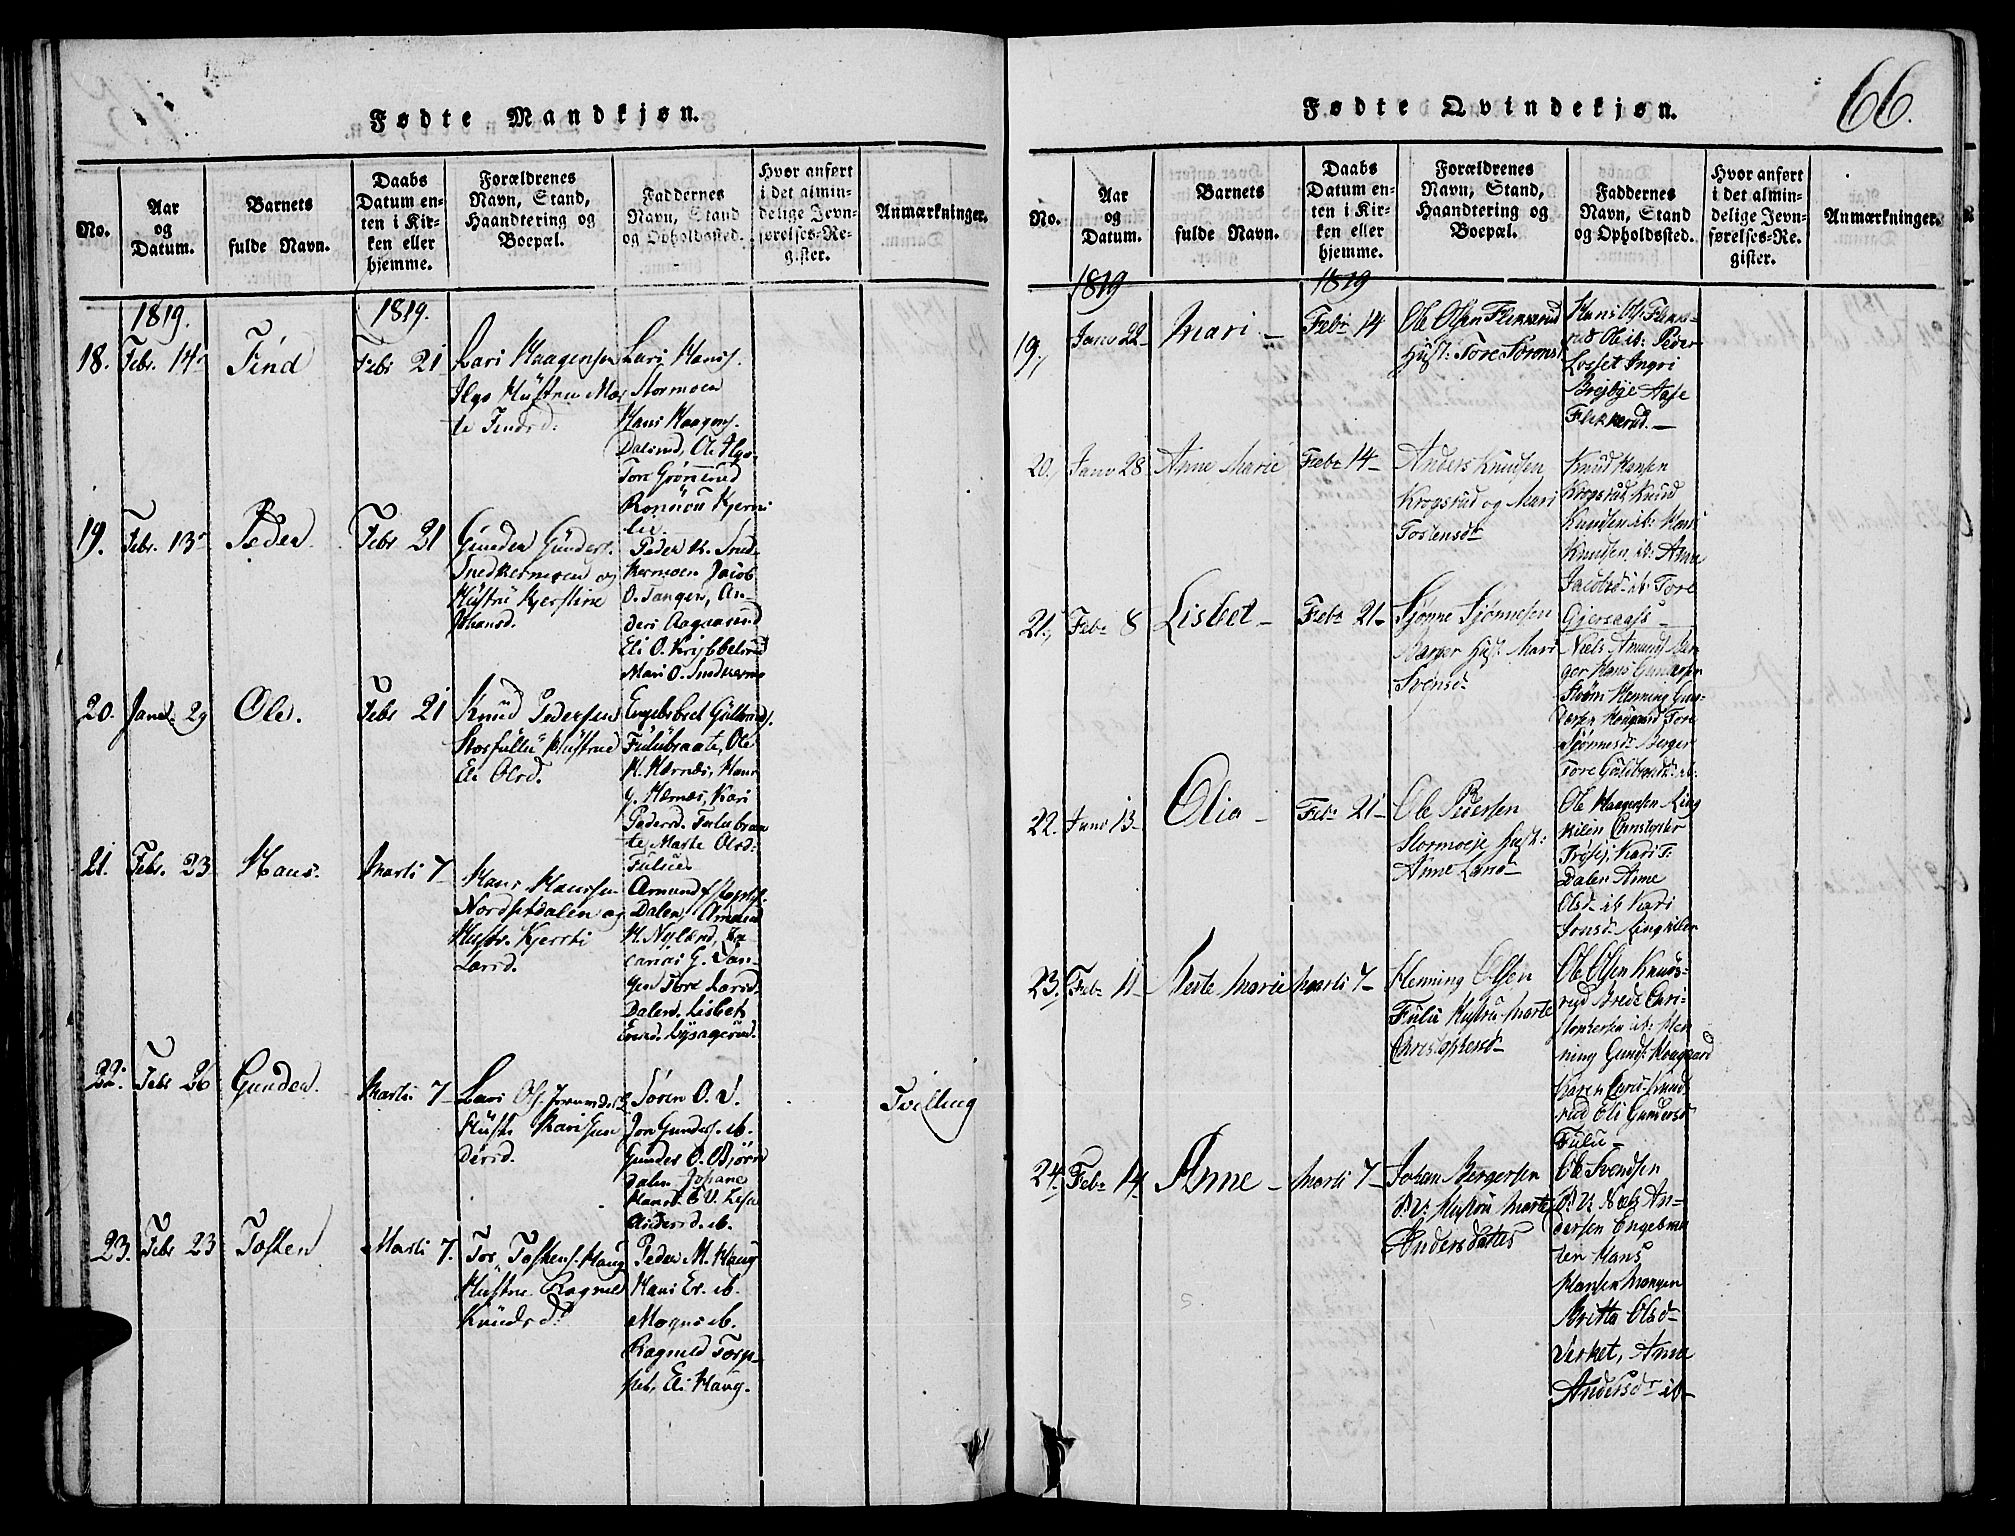 Fødte Mandkjøn.
No.
Aar
og
Datum.
Barnets
fulde Navn.
Daabs
Datum en-
ten i Kir-
ken eller
hjemme.
Forældrenes
Navn, Stand,
Haandtering og
Boepæl.
Faddernes
Navn, Stand
og Opholdssted.
Hvor anført
i det almin-
delige Jevn-
førelses-Re-
gister.
Anmærkninger.
1819.
1819.
18.
Febr. 14
Find
Febr 21
Lars Haagensen
Hustru Mar
te
Lars Hans.
Stormoen
Hans Haagens.
Dalsrud, Ole
Tore Grønnerud
19.
Febr. 13
Peder
Febr 21
Gunder Gunders.
Snedkermoen og
Hustru Kjerstine
Johansd.
Peder K. Sned-
kermoen Jacob
O. Tangen, An-
ders Aagaarud
Eli O. Kribbelrud
Mari O.
20.
Janr 29
Ole.
Febr 21
Knud Pedersen
Hustrue
Eli Olsd.
Engebret Gulbrands.
Fulubraate, Ole
H. Hernæs, Hans
G. Hernæs, Kari
Pedersd. Fulubraa
te, Marte Olsd:
Fulue
21.
Febr. 23
Hans.
Marti 7
Hans Hanssen
Nordsetdalen og
Hustr. Kjersti
Larsd.
Amund
Dalen, Amund
H. Nylænd,
G. Tan-
gen Tore Larsd.
Dalen. Lisbet
22.
Febr 26
Gunder.
Marti 7
Lars Ols.
Hustr. Kari Gun
dersd.
Søren O. V.
Jon Gunders. ib.
Gunder O. Bjørn
dalen Johane
Hansd. E V. Lisa
Andersd. ib.
Tvilling
23.
Febr 23
Tosten
Marti 7.
Tor Tostens. Haug
Hustrue Ragnild
Knudsd.
Peder M. Haug
Hans Er. ib.
Mogns ib.
Ragnild Torp-
set, Eli Haug.
Fødte Qvindekjøn.
66.
No.
Aar
og
Datum.
Barnets
fulde Navn.
Daabs
Datum en-
ten i Kir-
ken eller
hjemme.
Forældrenes
Navn, Stand,
Haandtering og
Boepæl.
Faddernes
Navn, Stand
og Opholdssted.
Hvor anført
i det almin-
delige Jevn-
førelses-Re-
gister.
Anmærkninger.
1819
1819
19,
Janr 22
Mari
Febr 14
Ole Olsen Flikkerud
Hust: Tore
Hans Ols: Flikke-
rud Ole ib: Peder
Losset Ingri
Brejbye Aase
Flikkerud.
20,
Janr 28
Anne Marie
Febr 14
Anders Knudsen
Krogsrud og Mari
Tostensdr
Knud Hansen
Krogsrud Knud
Knudsen ib: Hans
Knudsen ib: Anne
Jacobsd ib: Tore
21,
Febr 8
Lisbet
Febr 21
Sjønne Sjønnesen
Berger Hust: Mari
Svensdr
Niels Amunds. Ber
ger Hans Gundersen
Strøm Henning Gun-
dersen Haugaard Tore
Sjønnesdr Berger
Tore ib.
22.
Janr 13
Olia
Febr 21
Ole Pedersen
Stormoese Hust:
Anne Larsdr
Ole Haagensen Ling
kilen Christopher
Kari T:
Dalen Anne
Olsdr ib Kari
Jonsdr Lingkilen
23.
Febr 11
Marie
Marti 7
Henning Olsen
Fulu Hustru Marte
Christophersdr
Ole Olsen Knuds-
rud Brede Chri-
stophersen ib: Hen
ning Gunds: Haugaard
Karen Knuds
rud Eli Gundersd
Fulu
24.
Febr 14
Anne
Marti 7
Johan Bergersen
Hustru Marte
Andersdatter
Ole Svendsen
Niels An-
dersen Engebr
Hans
Hansen Mangen
Britta Olsdr
Verket, Anne
Andersdr ib